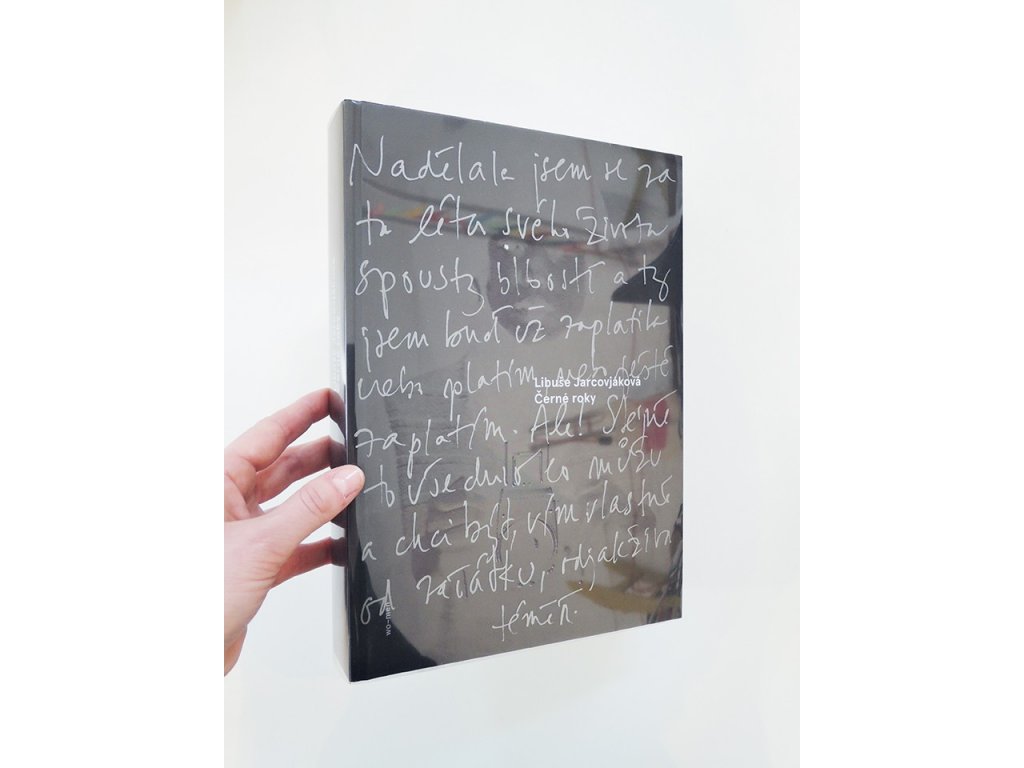 Nadělala jsem se za
ta léta svého života
spousty blbostí a ty
jsem buď už zaplatila
nebo platím, nebo ještě
Libuše Jarcovjáková
Černé roky
zaplatím. Ale! Stejně
to všechno co můžu
a chci být, vím vlastně
od začátku, odjakživa
téměř.
wo-men